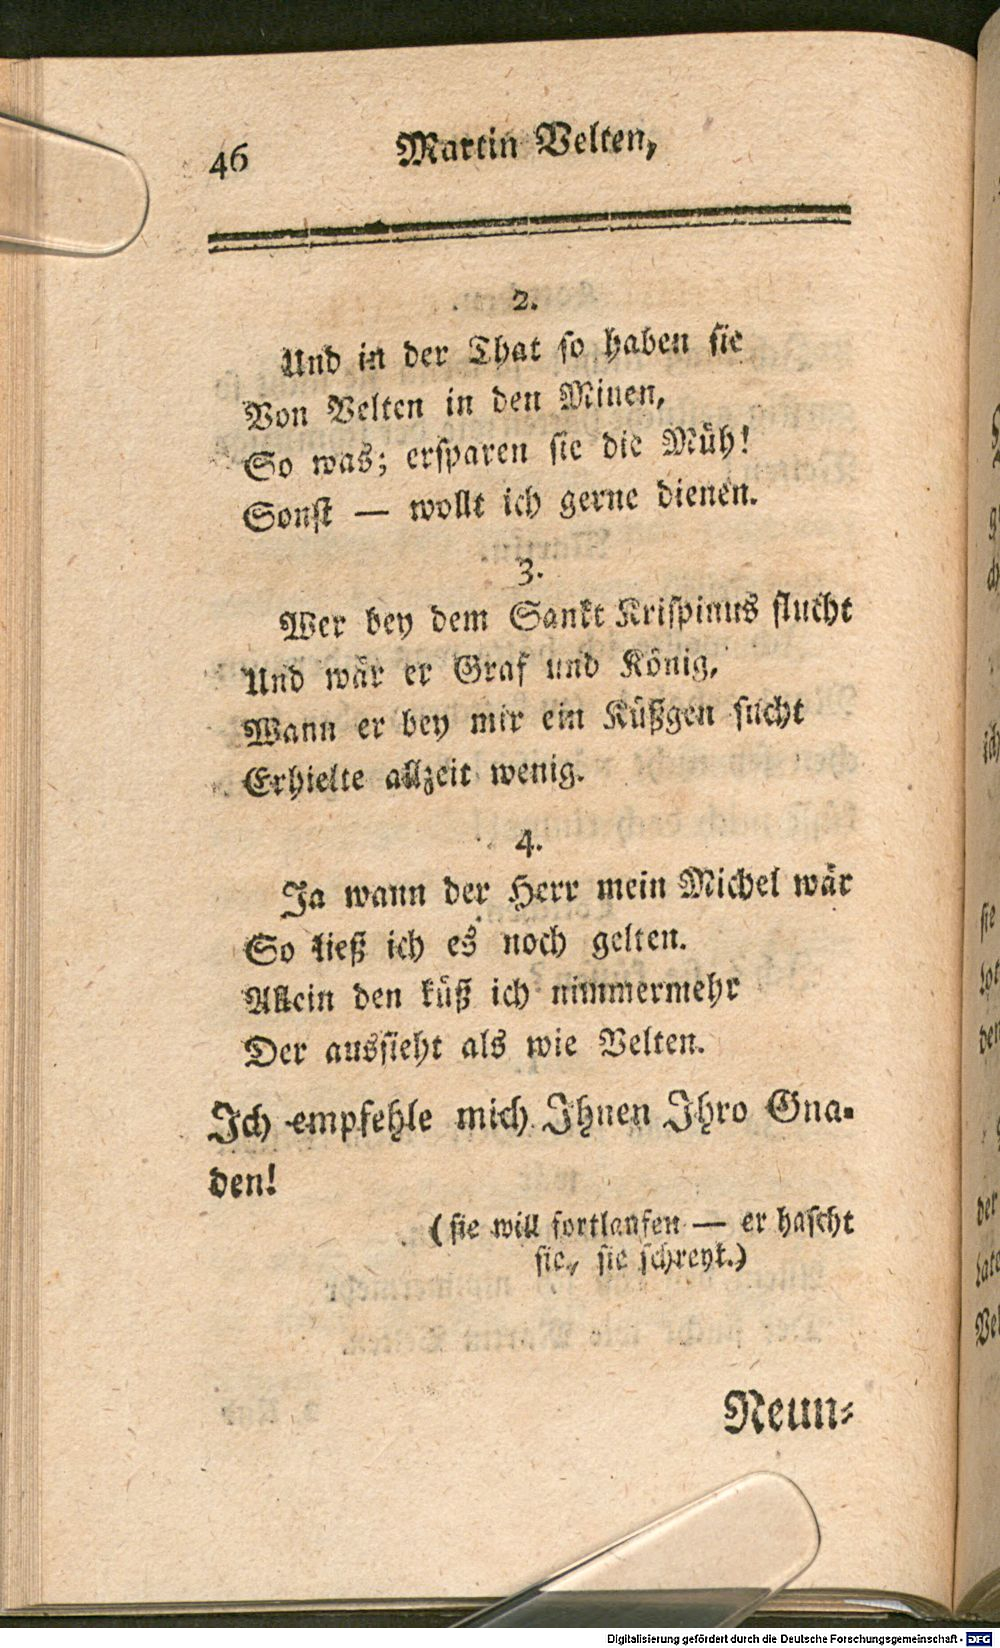 46
Martin Velten,
2.
Und in der That so haben sie
Von Velten in den Minen,
So was; ersparen sie die Müh!
Sonst — wollt ich gerne dienen.
3.
Wer bey dem Sankt Krispinus flucht
Und wär er Graf und König,
Wann er bey mir ein Küßgen sucht
Erhielte allzeit wenig.
4.
Ja wann der Herr mein Michel wär
So ließ ich es noch gelten.
Allein den küß ich nimmermehr
Der aussieht als wie Velten.
Ich empfehle mich Ihnen Ihro Gna-
den!
(sie will fortlaufen — er hascht
sie, sie schreyt.)
Neun-
Digitalisierung gefördert durch die Deutsche Forschungsgemeinschaft - DFG